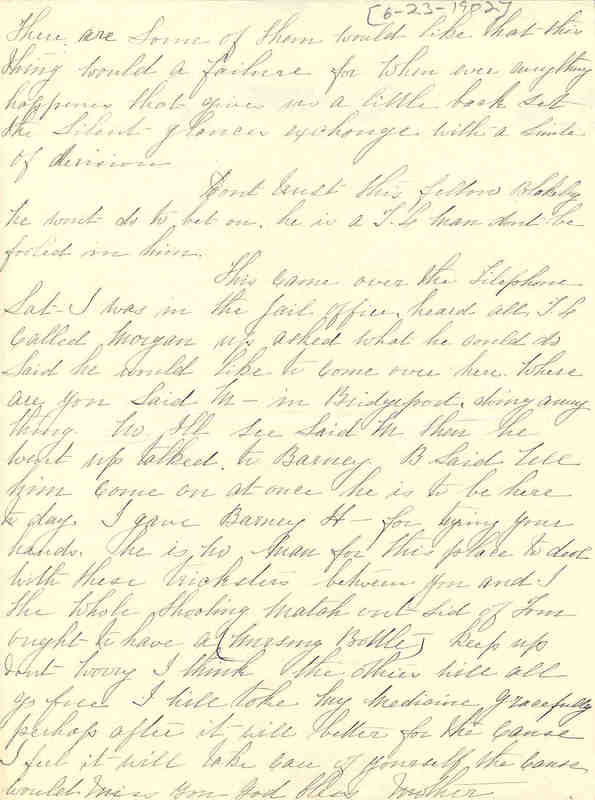 [6-23-1902]
There are Some of them would like that this
thing would a failure for when ever anything
happenes that gives us a little back set
the Silent glances exchange with a Smile
of derision
Dont trust this fellow Blakely
he wont do to bet on. he is a T. L man dont be
fooled in him.
This came over the Telephone
Sat - I was in the jail office, heard all T L
Called Morgan up asked what he could do
Said he would like to come over here. Where
are you Said M - in Bridgeport. doing any
thing No Ill see Said M then he
went up talked to Barney B Said Tell
him come on at once he is to be here
to day. I gave Barney H - for tying your
hands. he is no man for this place to deal
with these tricksters between you and I
the whole Shooting match out sid of Tom
ought to have a (Nursing Bottle) Keep up
dont worry I think the others will all
go free I will take my medicine gracefully
perhap after it will better for the Cause
I feel it will take care of yourself the Cause
would Miss you God bless Mother